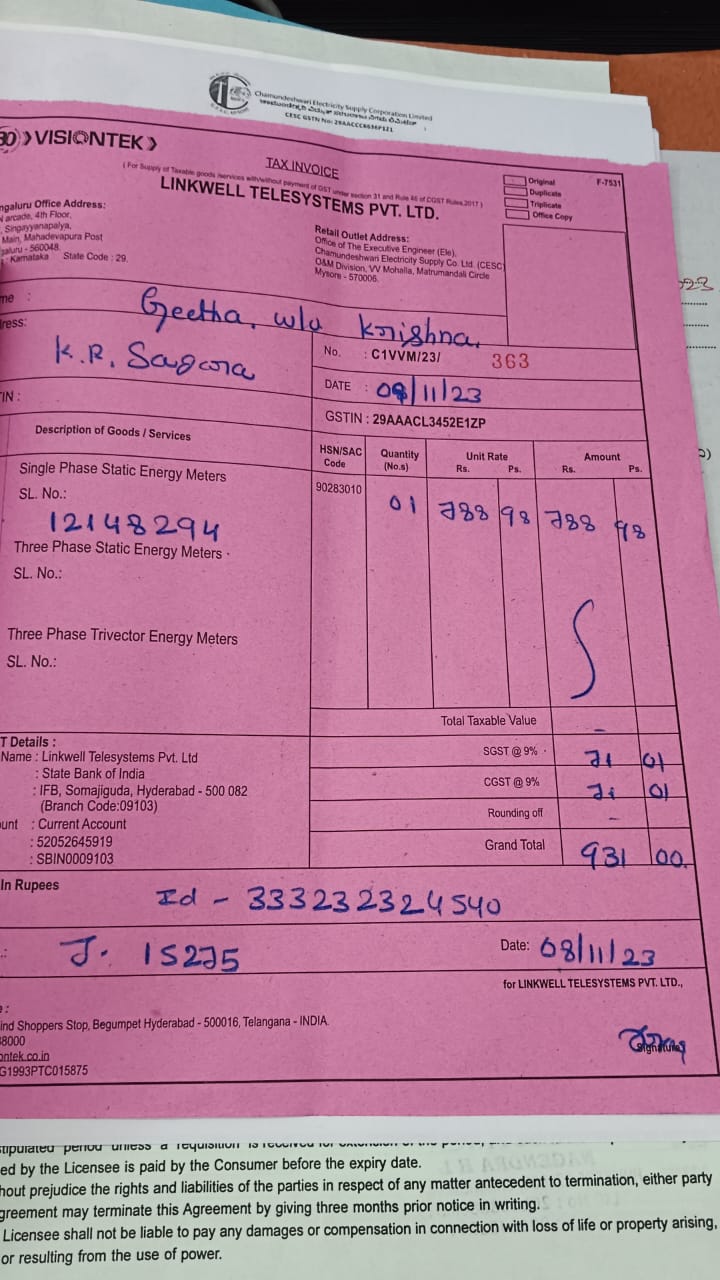 Chamundeshwari Electricity Supply Corporation Limited
CESC GSTN No: 29AACCC8636P1Z1
VISIONTEK
TAX INVOICE
(For Supply of Taxable goods /services with/without payment of GST under section 31 and Rule 46 of CGST Rules 2017)
LINKWELL TELESYSTEMS PVT. LTD.
Original
Duplicate
Triplicate
Office Copy
F-7531
ngaluru Office Address:
arcade, 4th Floor,
Singayyanapalya,
Main, Mahadevapura Post
galuru - 560048.
Karnataka State Code : 29.
Retail Outlet Address:
Office of The Executive Engineer (Ele),
Chamundeshwari Electricity Supply Co. Ltd. (CESC)
O&M Division, VV Mohalla, Matrumandali Circle
Mysore - 570006.
me : Geetha. w/o Krishna.
ress: K.R. Sagara
No. : C1VVM/23/ 363
DATE : 08/11/23
TIN :
GSTIN : 29AAACL3452E1ZP
Description of Goods / Services
HSN/SAC Code
Quantity (No.s)
Unit Rate Rs. Ps.
Amount Rs. Ps.
Single Phase Static Energy Meters
90283010 01 788 98 788 98
SL. No.:
12148294
Three Phase Static Energy Meters
SL. No.:
Three Phase Trivector Energy Meters
SL. No.:
Total Taxable Value -
T Details :
Name : Linkwell Telesystems Pvt. Ltd
: State Bank of India
: IFB, Somajiguda, Hyderabad - 500 082
(Branch Code:09103)
unt : Current Account
: 52052645919
: SBIN0009103
SGST @ 9% 71 01
CGST @ 9% 71 01
Rounding off -
Grand Total 931 00
In Rupees
Id - 333232324540
J. 15275
Date: 08/11/23
for LINKWELL TELESYSTEMS PVT. LTD.,
Signature
ind Shoppers Stop, Begumpet Hyderabad - 500016, Telangana - INDIA.
8000
ontek.co.in
G1993PTC015875
ed by the Licensee is paid by the Consumer before the expiry date.
hout prejudice the rights and liabilities of the parties in respect of any matter antecedent to termination, either party
greement may terminate this Agreement by giving three months prior notice in writing.
Licensee shall not be liable to pay any damages or compensation in connection with loss of life or property arising,
or resulting from the use of power.